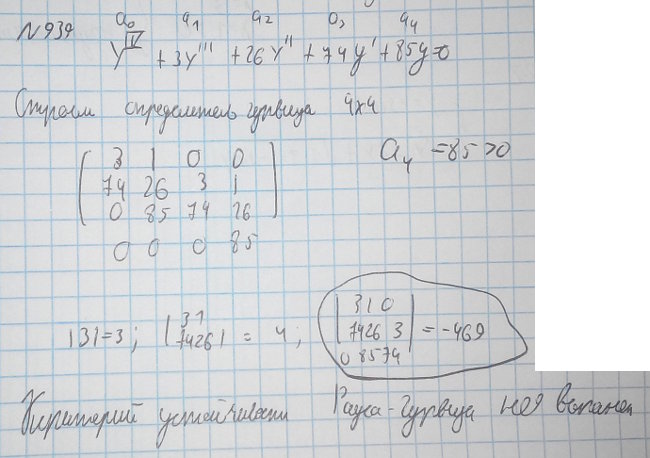 N 939
a₀ a₁ a₂ a₃ a₄
y^IV + 3y''' + 26y'' + 74y' + 85y=0
Строим определитель Гурвица 4x4
3 1 0 0
74 26 3 1
0 85 74 26
0 0 0 85
a₄ = 85 > 0
|3|=3; |3 1
74 26| = 4; |3 1 0
74 26 3
0 85 74| = -469
Критерий устойчивости Рауса-Гурвица не